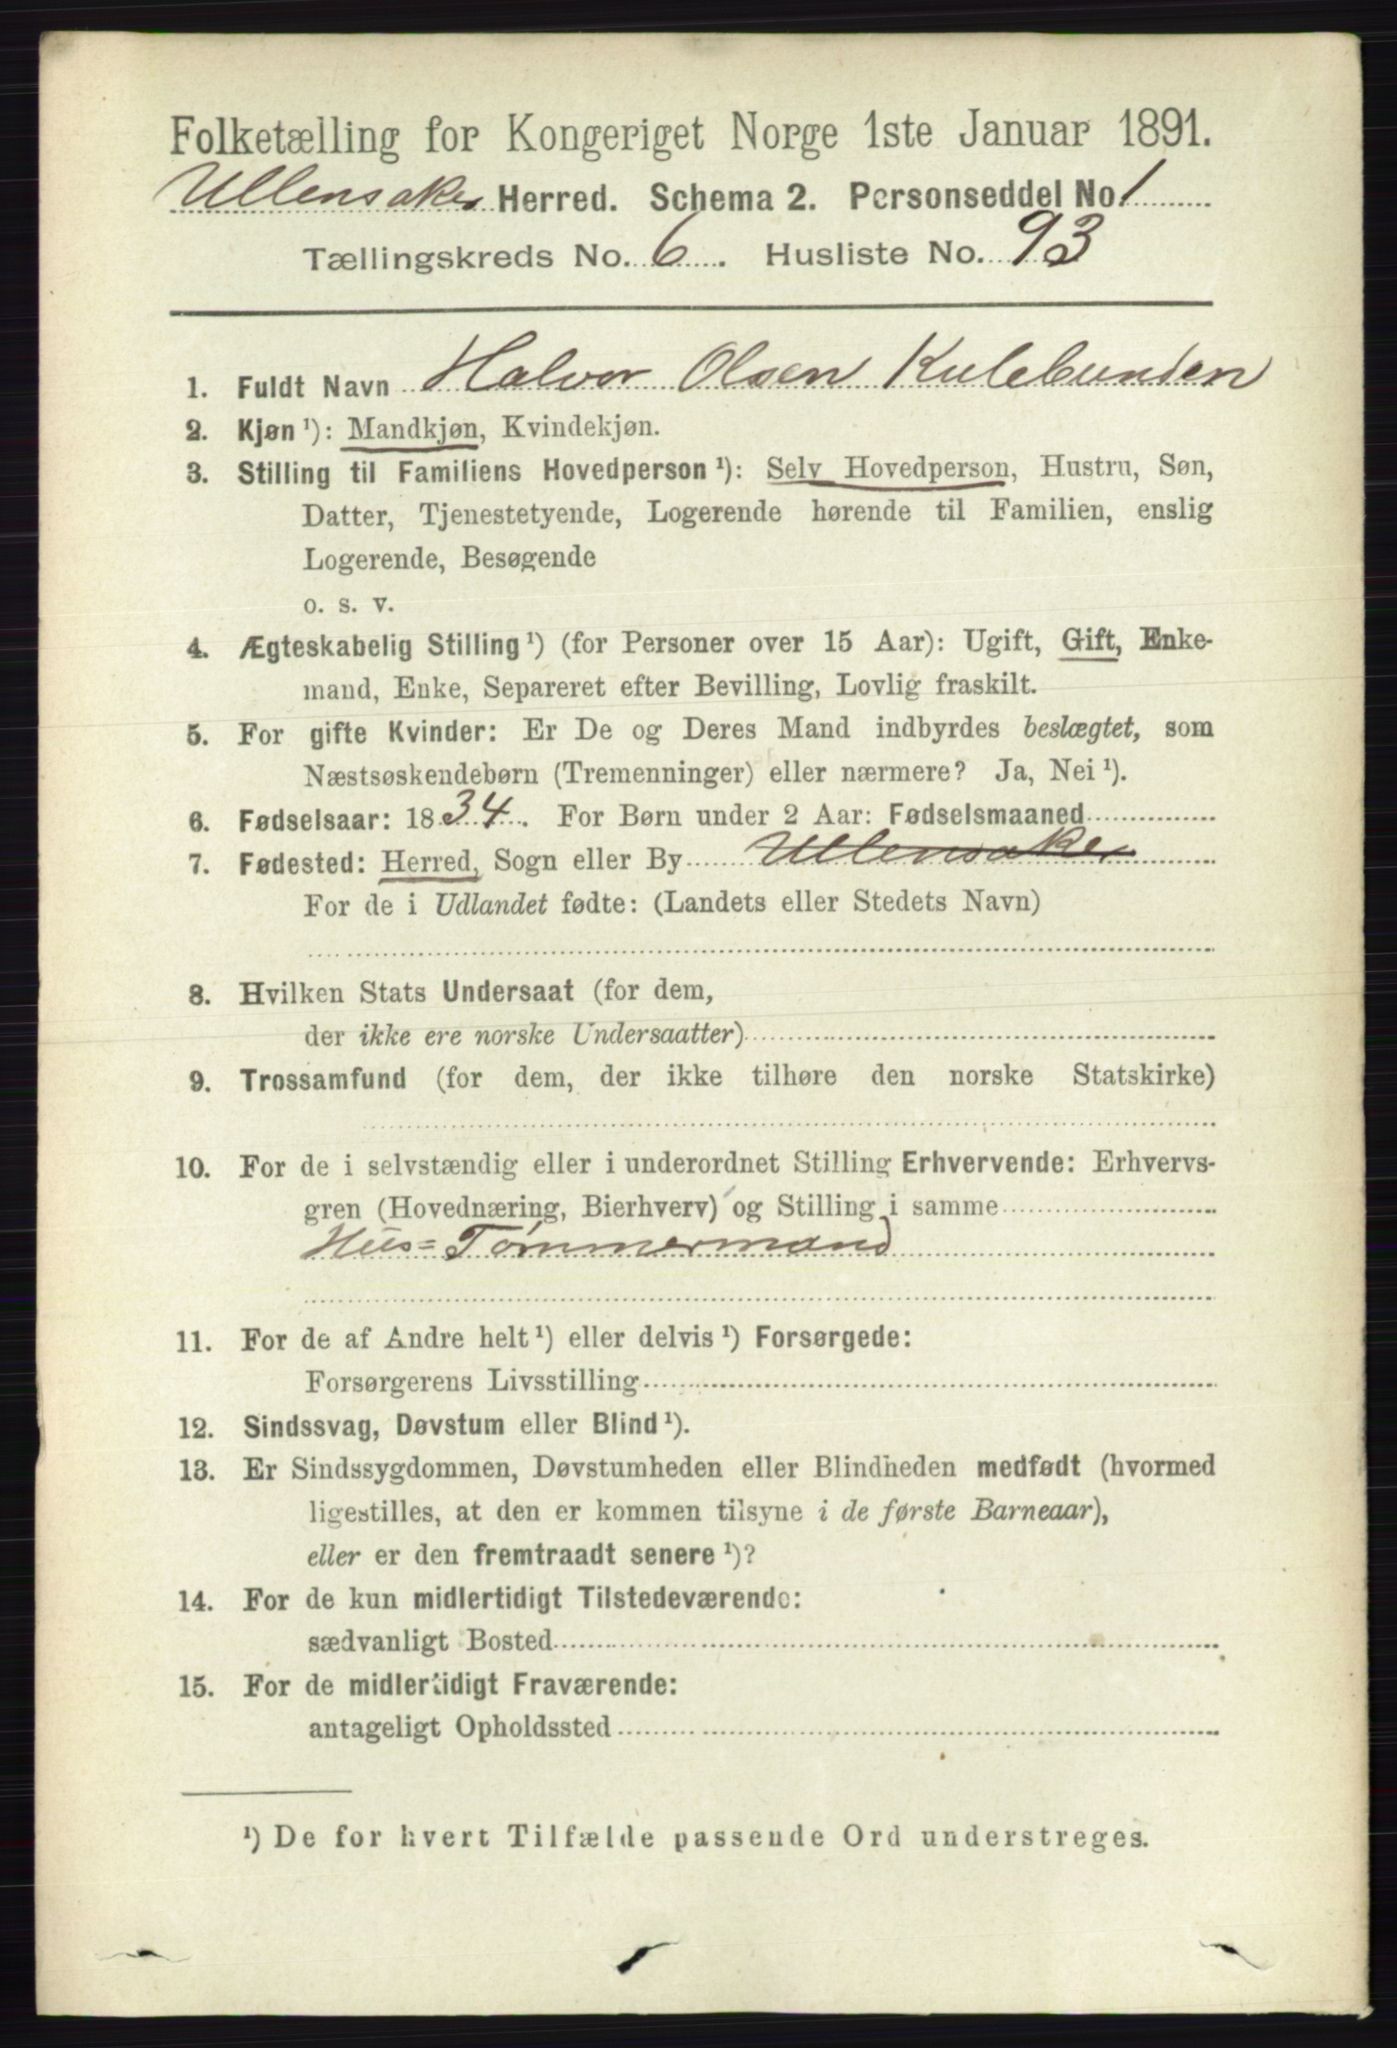 Folketælling for Kongeriget Norge 1ste Januar 1891.
Ullensaker Herred. Schema 2. Personseddel No 1
Tællingskreds No. 6. Husliste No. 93
1. Fuldt Navn Halvor Olsen Kulebunden
2. Kjøn ¹): Mandkjøn, Kvindekjøn.
3. Stilling til Familiens Hovedperson ¹): Selv Hovedperson, Hustru, Søn,
Datter, Tjenestetyende, Logerende hørende til Familien, enslig
Logerende, Besøgende
o. s. v.
4. Ægteskabelig Stilling ¹) (for Personer over 15 Aar): Ugift, Gift, Enke-
mand, Enke, Separeret efter Bevilling, Lovlig fraskilt.
5. For gifte Kvinder: Er De og Deres Mand indbyrdes beslægtet, som
Næstsøskendebørn (Tremenninger) eller nærmere? Ja, Nei ¹).
6. Fødselsaar: 1834. For Børn under 2 Aar: Fødselsmaaned
7. Fødested: Herred, Sogn eller By Ullensaker
For de i Udlandet fødte: (Landets eller Stedets Navn)
8. Hvilken Stats Undersaat (for dem,
der ikke ere norske Undersaatter)
9. Trossamfund (for dem, der ikke tilhøre den norske Statskirke)
10. For de i selvstændig eller i underordnet Stilling Erhvervende: Erhvervs-
gren (Hovednæring, Bierhverv) og Stilling i samme
Hus= Tømmermand
11. For de af Andre helt ¹) eller delvis ¹) Forsørgede:
Forsørgerens Livsstilling
12. Sindssvag, Døvstum eller Blind ¹).
13. Er Sindssygdommen, Døvstumheden eller Blindheden medfødt (hvormed
ligestilles, at den er kommen tilsyne i de første Barneaar),
eller er den fremtraadt senere ¹)?
14. For de kun midlertidigt Tilstedeværende:
sædvanligt Bosted
15. For de midlertidigt Fraværende:
antageligt Opholdssted
¹) De for hvert Tilfælde passende Ord understreges.